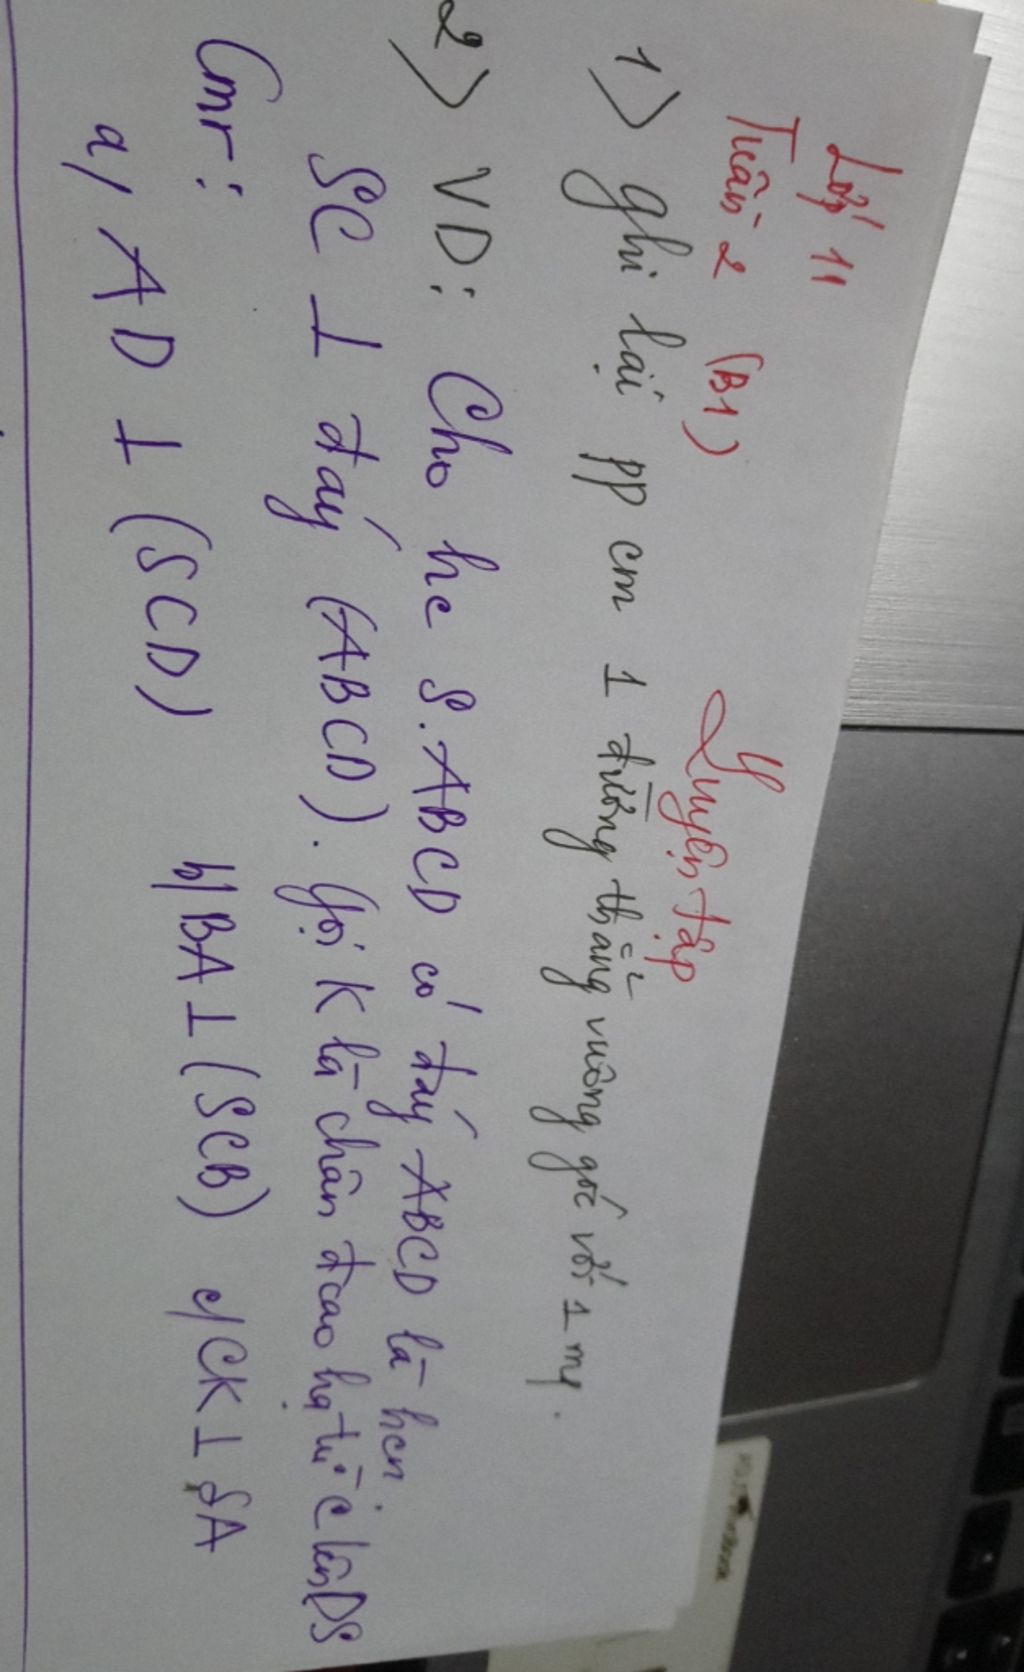 Lớp 11
Tuần 2 (B1) Luyện tập
1> ghi lại pp cm 1 đường thẳng vuông góc với 1 mp.
2> VD: Cho hc S.ABCD có đáy ABCD là hcn.
SC ⊥ đáy (ABCD). Gọi K là chân đcao hạ từ C lên DS
Cmr:
a, AD ⊥ (SCD) b/ BA ⊥ (SCB) c/ CK ⊥ SA